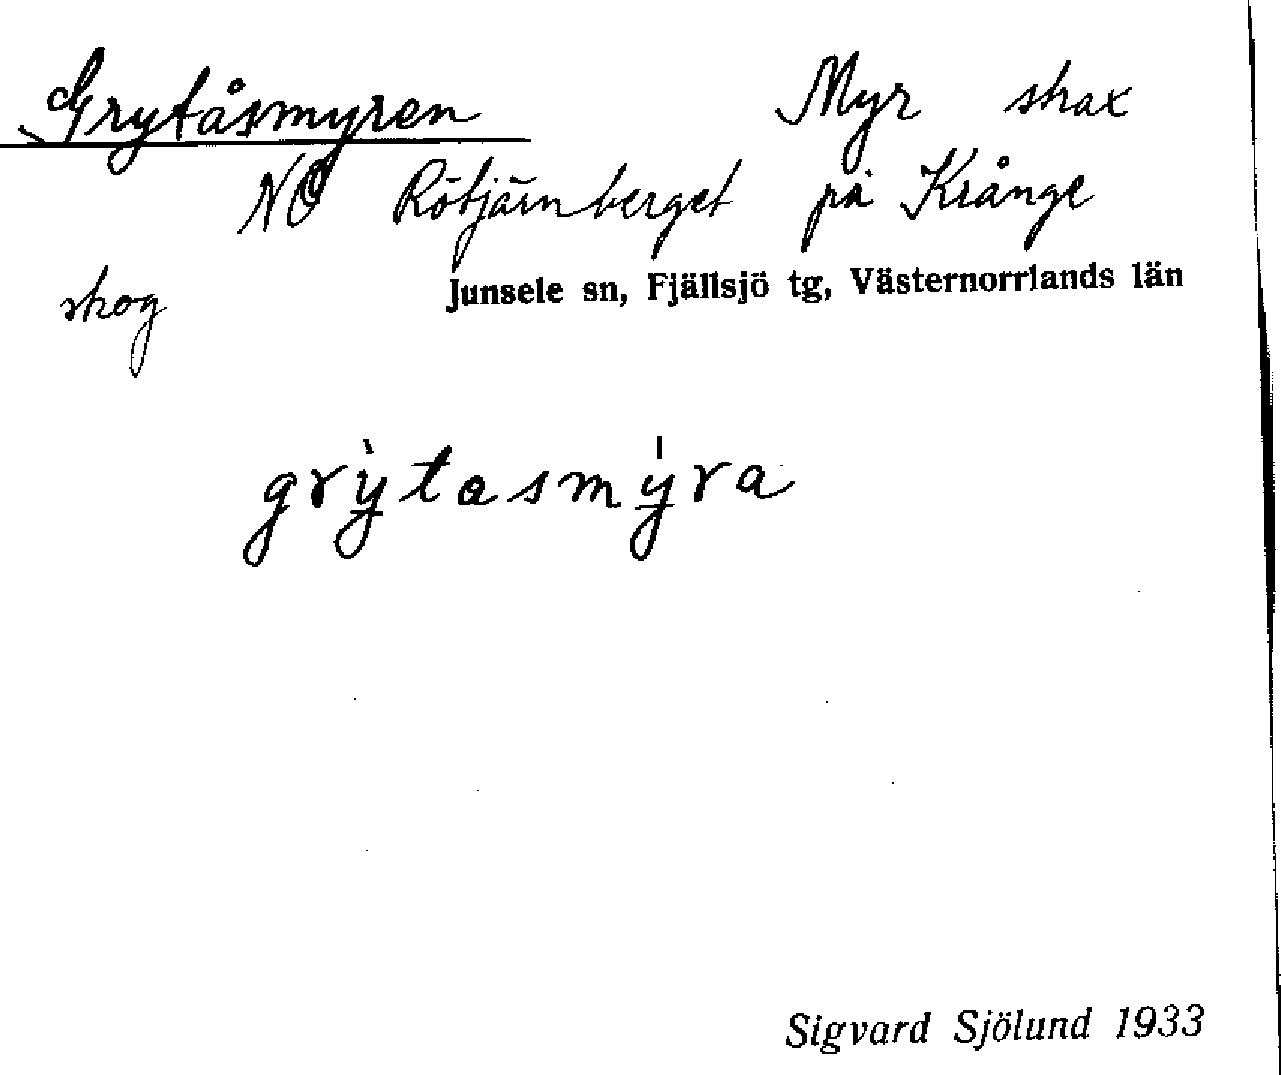 Grytåsmyren Myr strax
NO Rötjärnberget på Krånge
skog Junsele sn, Fjällsjö tg, Västernorrlands län
grỳtasmýra
Sigvard Sjölund 1933